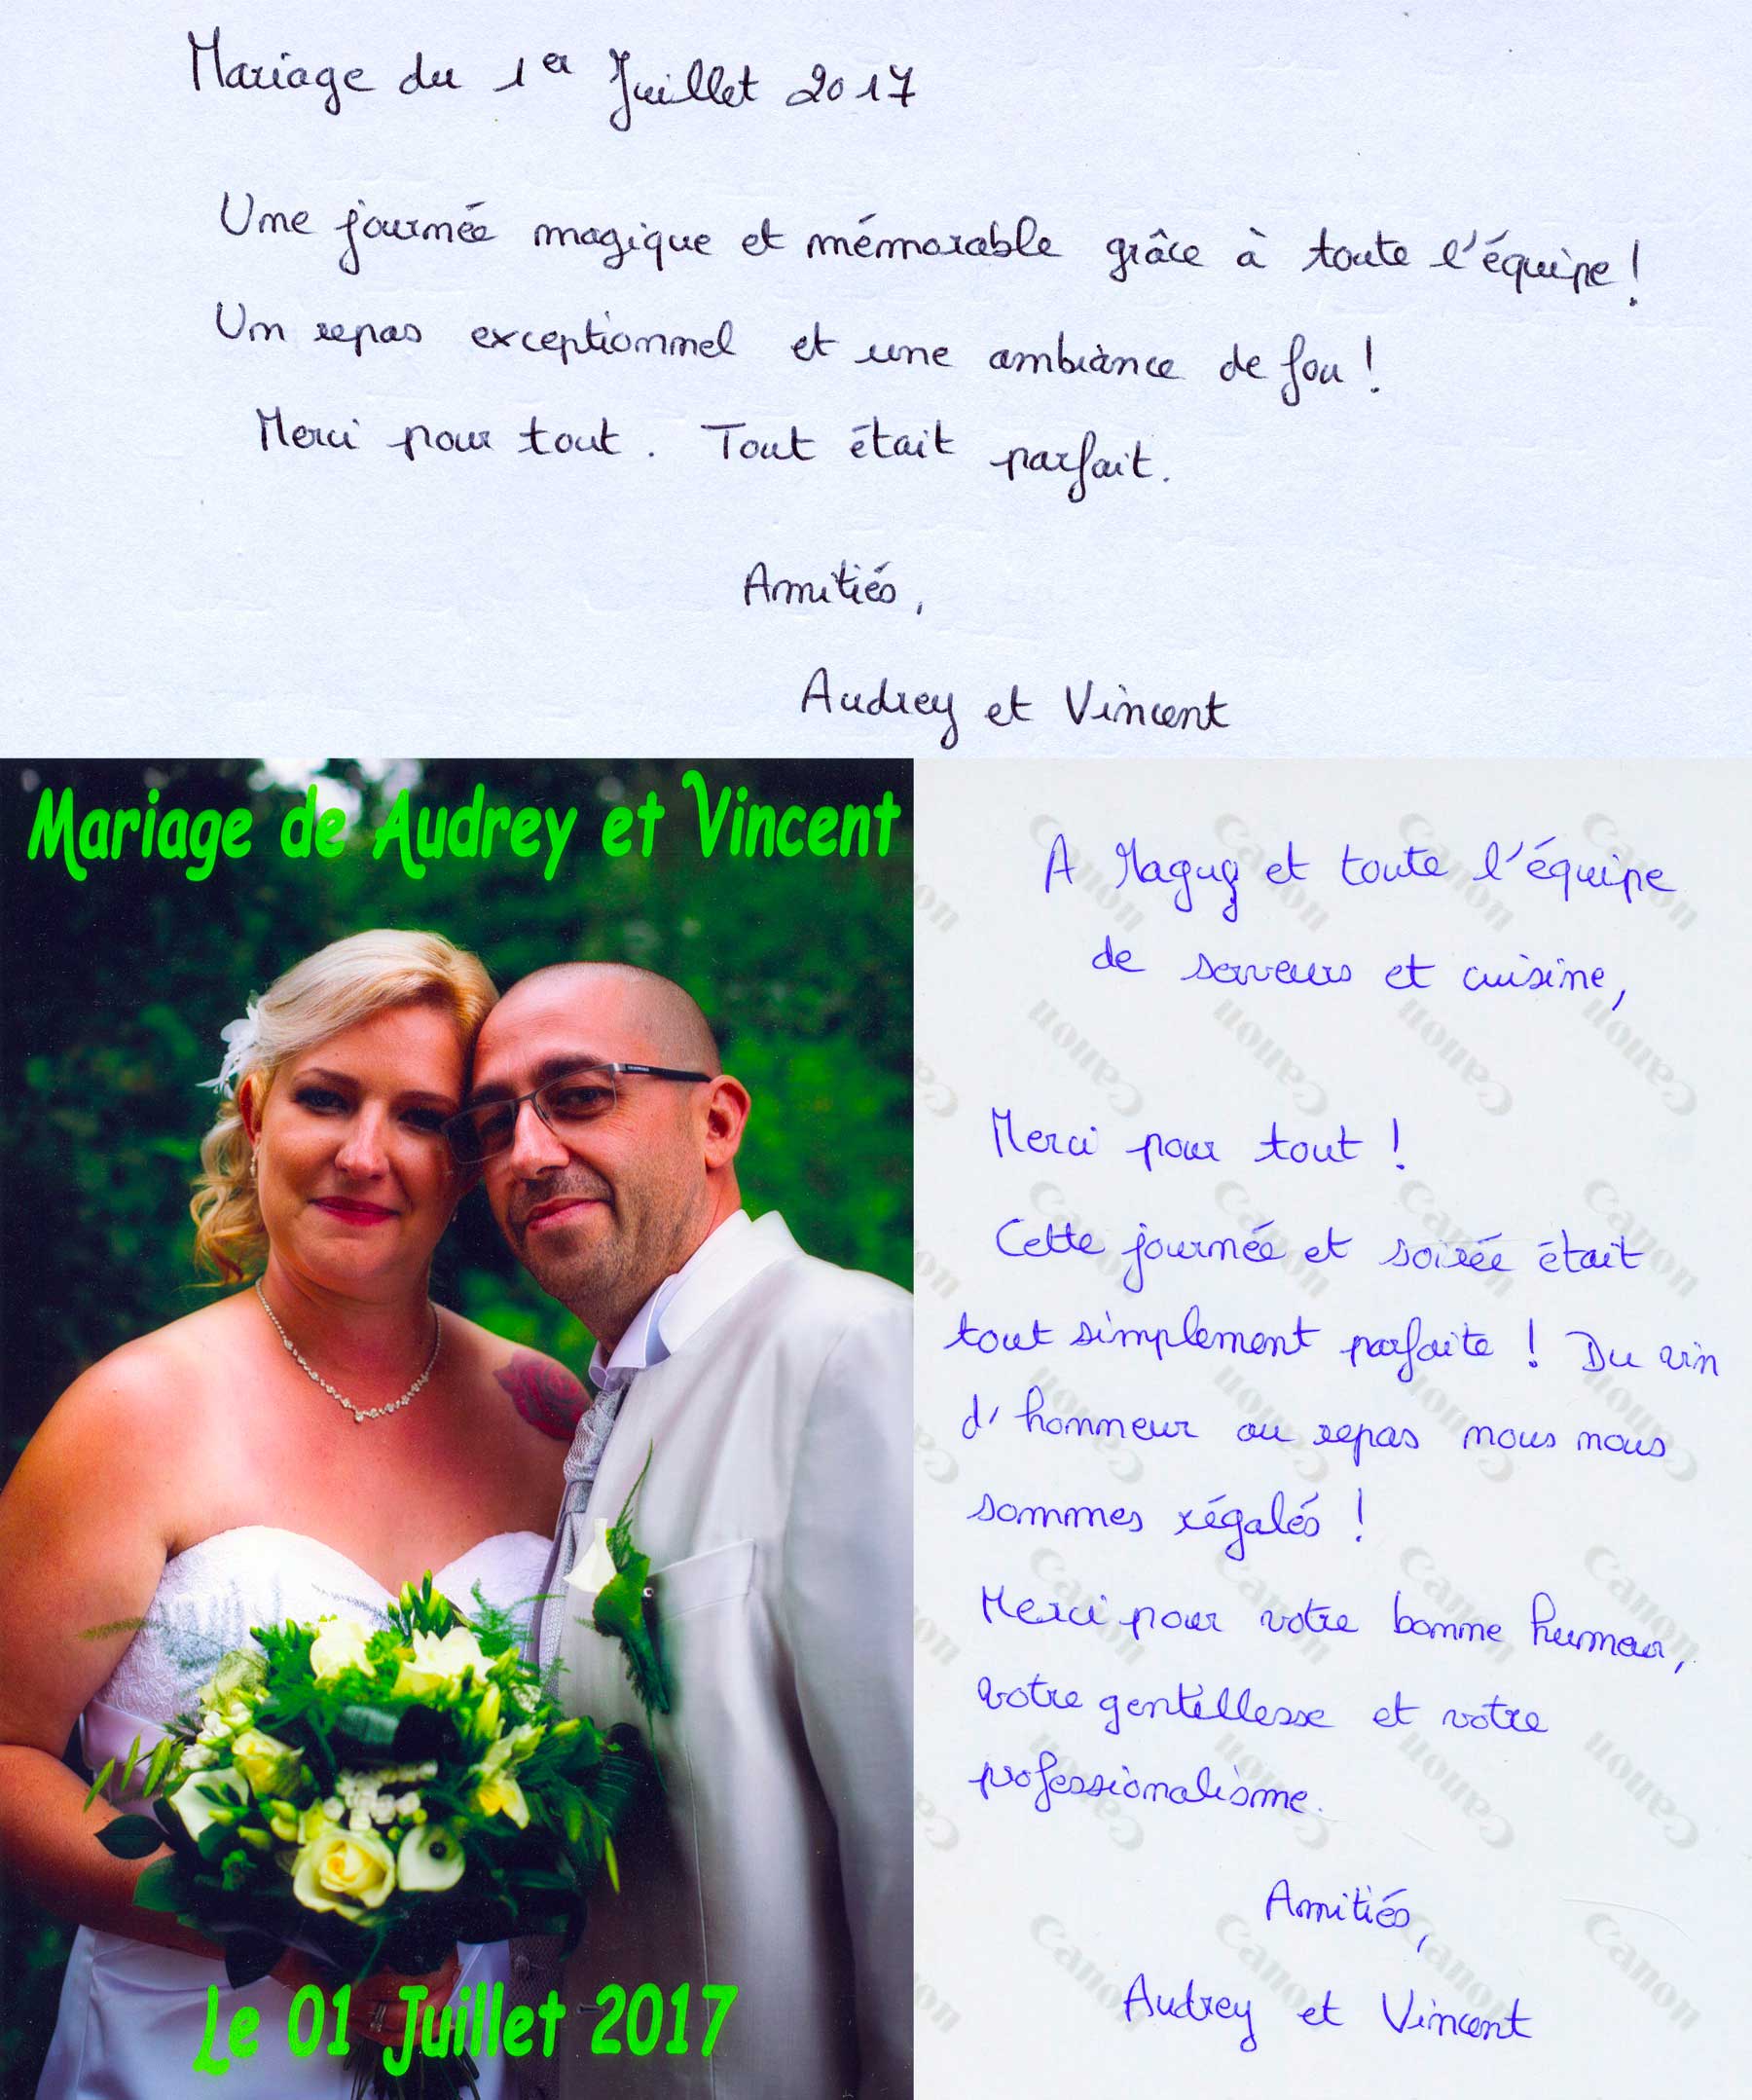 Mariage du 1er Juillet 2017
Une journée magique et mémorable grâce à toute l'équipe !
Un repas exceptionnel et une ambiance de fou !
Merci pour tout. Tout était parfait.
Amitiés,
Audrey et Vincent
Mariage de Audrey et Vincent
Le 01 Juillet 2017
A Maguy et toute l'équipe
de serveurs et cuisine,
Merci pour tout !
Cette journée et soirée était
tout simplement parfaite ! Du vin
d'honneur au repas nous nous
sommes régalés !
Merci pour votre bonne humeur,
votre gentillesse et votre
professionalisme.
Amitiés,
Audrey et Vincent
Canon